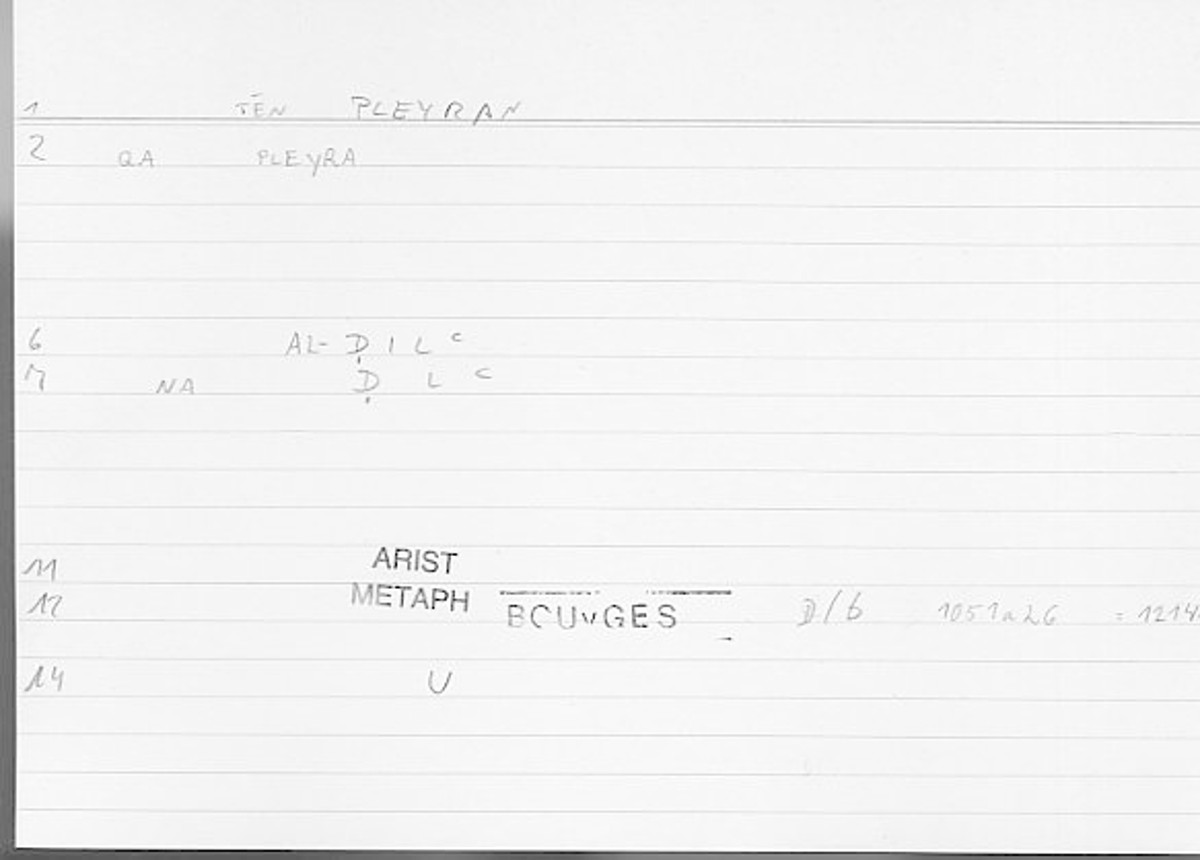 1 TĒN PLEYRAN
2 QA PLEYRA
6 AL-ḌILʿ
7 NA Ḍ L ʿ
11 ARIST
12 METAPH D/b 1051a26 = 1214
14 U